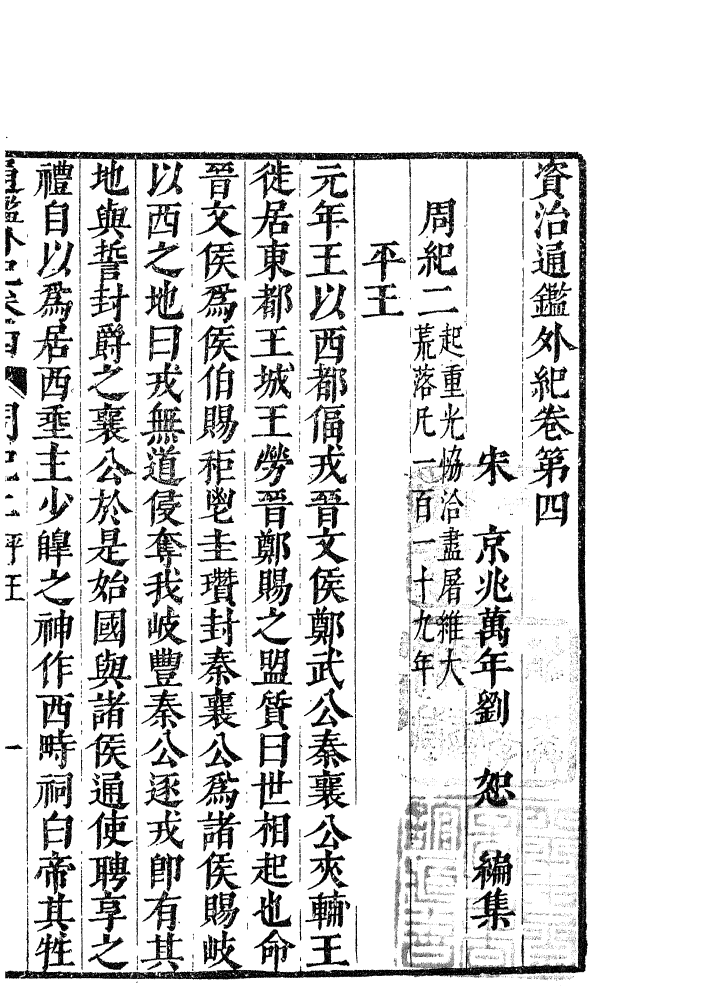 資治通鑑外紀卷第四
宋　京兆萬年劉　恕　編集
周紀二起重光協洽盡屠維大
荒落凡一百一十九年
平王
元年王以西都偪戎晉文侯鄭武公秦襄公夾輔王
徙居東都王城王勞晉鄭賜之盟質曰世相起也命
晉文侯爲侯伯賜秬鬯圭瓚封秦襄公爲諸侯賜岐
以西之地曰戎無道侵奪我岐豐秦公逐戎卽有其
地與誓封爵之襄公於是始國與諸侯通使聘享之
禮自以爲居西垂主少皡之神作西畤祠白帝其牲
通鑑外紀卷四　周紀二　平王　一